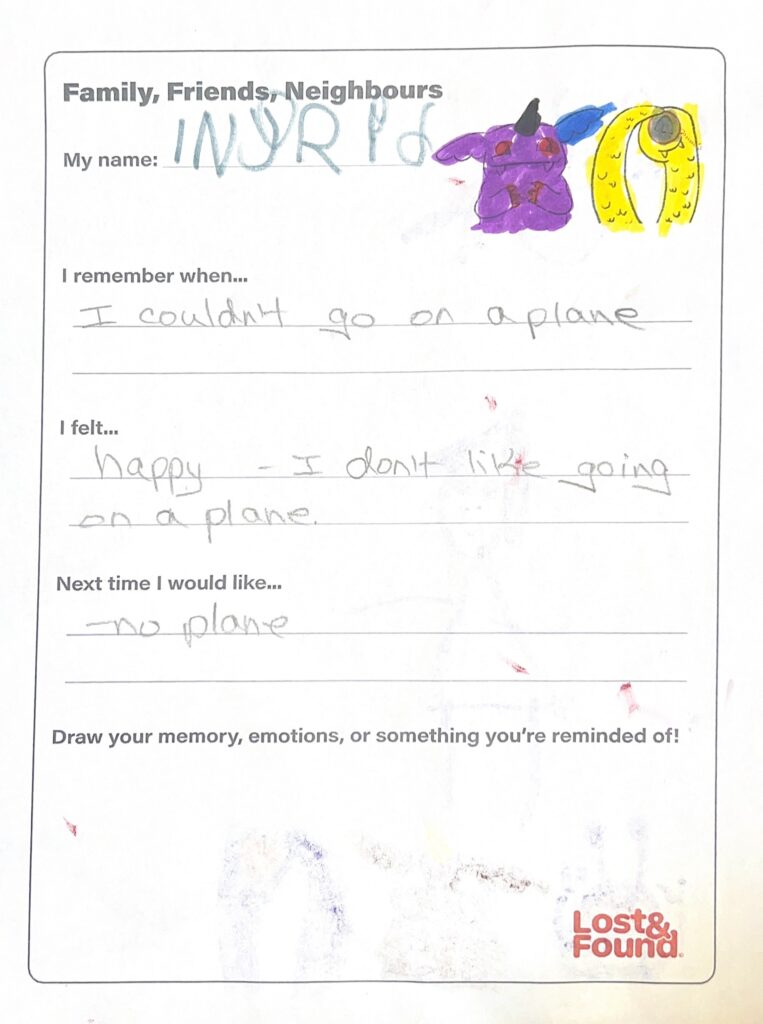 Family, Friends, Neighbours
My name: INGRId
I remember when...
I couldn't go on a plane
I felt...
happy - I don't like going
on a plane.
Next time I would like...
-no plane
Draw your memory, emotions, or something you're reminded of!
Lost&
Found.